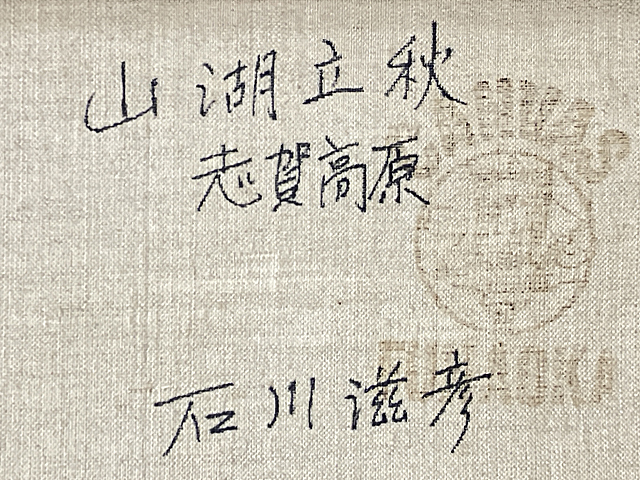 山湖立秋
志賀高原
石川滋彦